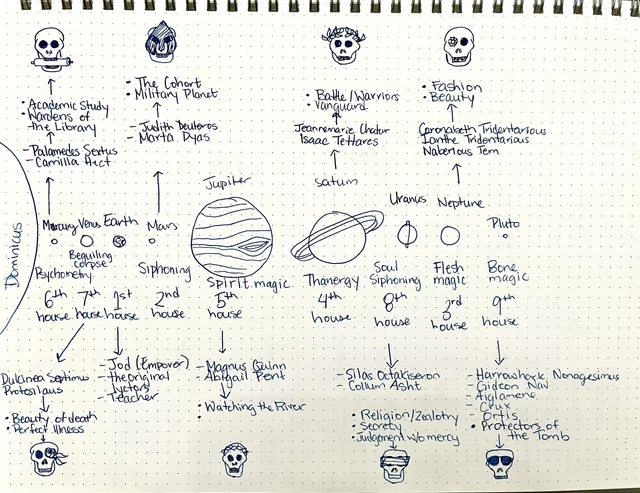 • The Cohort
• Military Planet
- Judith Deuteros
- Marta Dyas
• Academic Study
• Wardens of
the Library
- Palamedes Sextus
- Camilla Hect
• Battle/Warriors
• Vanguard
Jeannemarie Chatur
Isaac Tettares
• Fashion
• Beauty
Coronabeth Tridentarious
Ianthe Tridentarious
Naberious Tern
Dominicus
Mercury
Venus
Earth
Mars
Jupiter
Saturn
Uranus
Neptune
Pluto
Psychometry
Beguiling
corpse
Siphoning
Spirit magic
Thanergy
Soul
Siphoning
Flesh
magic
Bone
magic
6th
house
7th
house
1st
house
2nd
house
5th
house
4th
house
8th
house
3rd
house
9th
house
Dulcinea Septimus
Protesilaus
• Beauty of death
• Perfect Illness
- Jod (Emporer)
- the original
lyctors
- Teacher
- Magnus Quinn
- Abigail Pent
• Watching the River
- Silas Octakiseron
- Collum Asht
• Religion/Zealotry
• Secrety
• Judgement w/o mercy
- Harrowhark Nonagesimus
- Gideon Nav
- Aiglamene
- Crux
- Ortis
• Protectors of
the Tomb